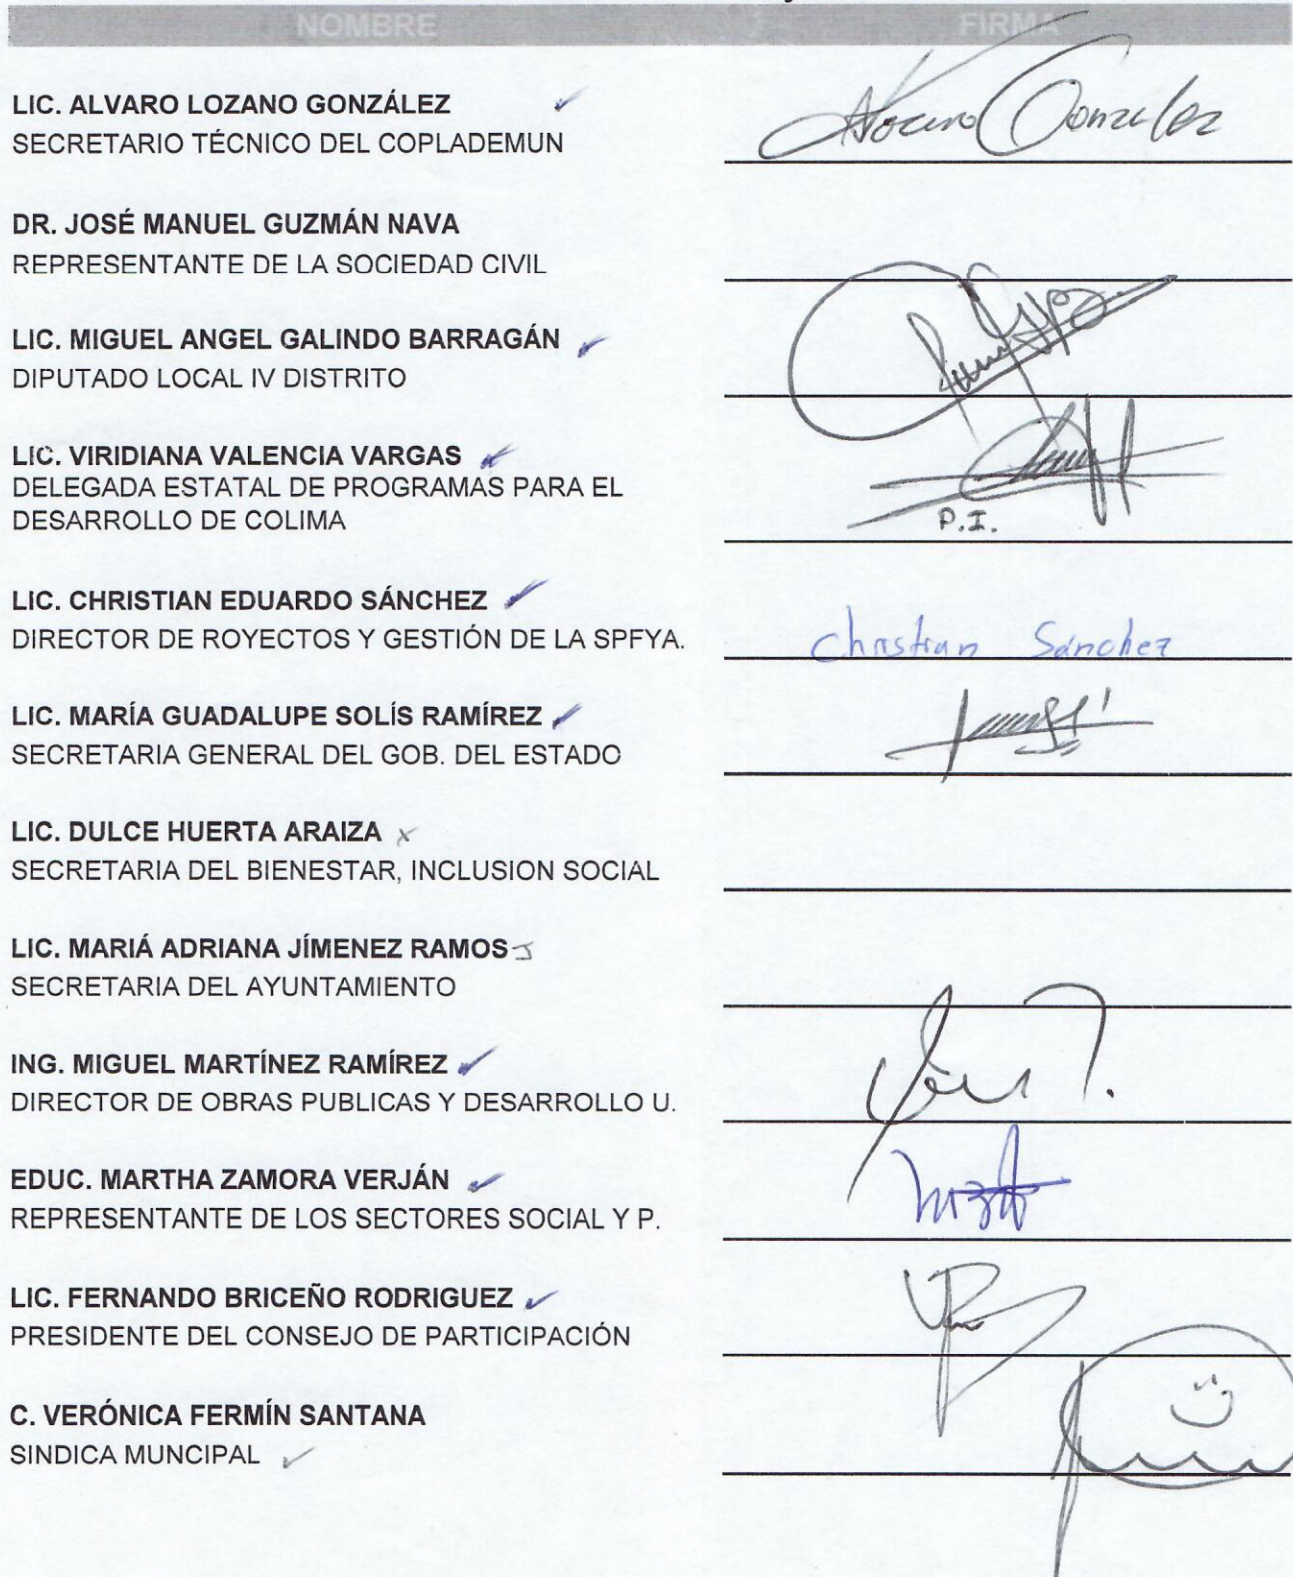 NOMBRE FIRMA
LIC. ALVARO LOZANO GONZÁLEZ
SECRETARIO TÉCNICO DEL COPLADEMUN
DR. JOSÉ MANUEL GUZMÁN NAVA
REPRESENTANTE DE LA SOCIEDAD CIVIL
LIC. MIGUEL ANGEL GALINDO BARRAGÁN
DIPUTADO LOCAL IV DISTRITO
LIC. VIRIDIANA VALENCIA VARGAS
DELEGADA ESTATAL DE PROGRAMAS PARA EL
DESARROLLO DE COLIMA
P.I.
LIC. CHRISTIAN EDUARDO SÁNCHEZ
DIRECTOR DE ROYECTOS Y GESTIÓN DE LA SPFYA.
Christian Sánchez
LIC. MARÍA GUADALUPE SOLÍS RAMÍREZ
SECRETARIA GENERAL DEL GOB. DEL ESTADO
LIC. DULCE HUERTA ARAIZA
SECRETARIA DEL BIENESTAR, INCLUSION SOCIAL
LIC. MARIÁ ADRIANA JÍMENEZ RAMOS
SECRETARIA DEL AYUNTAMIENTO
ING. MIGUEL MARTÍNEZ RAMÍREZ
DIRECTOR DE OBRAS PUBLICAS Y DESARROLLO U.
EDUC. MARTHA ZAMORA VERJÁN
REPRESENTANTE DE LOS SECTORES SOCIAL Y P.
LIC. FERNANDO BRICEÑO RODRIGUEZ
PRESIDENTE DEL CONSEJO DE PARTICIPACIÓN
C. VERÓNICA FERMÍN SANTANA
SINDICA MUNCIPAL